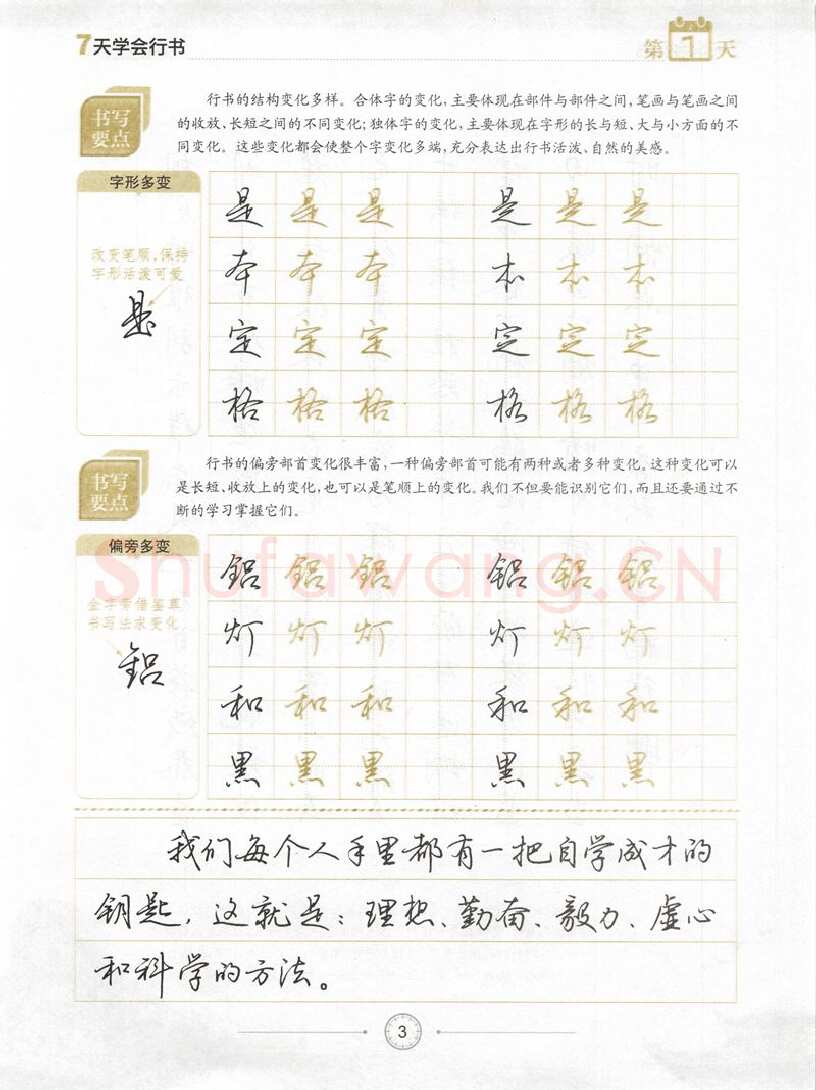 7天学会行书
第1天
书写要点
行书的结构变化多样。合体字的变化,主要体现在部件与部件之间,笔画与笔画之间
的收放、长短之间的不同变化;独体字的变化,主要体现在字形的长与短、大与小方面的不
同变化。这些变化都会使整个字变化多端,充分表达出行书活泼、自然的美感。
字形多变
改变笔顺,保持
字形活泼可爱
是
是是是 是是是
本本本 本本本
定定定 定定定
格格格 格格格
书写要点
行书的偏旁部首变化很丰富,一种偏旁部首可能有两种或者多种变化。这种变化可以
是长短、收放上的变化,也可以是笔顺上的变化。我们不但要能识别它们,而且还要通过不
断的学习掌握它们。
偏旁多变
金字旁借鉴草
书写法求变化
铝
铝铝铝 铝铝铝
灯灯灯 灯灯灯
和和和 和和和
黑黑黑 黑黑黑
Shufawang.CN
我们每个人手里都有一把自学成才的
钥匙,这就是:理想、勤奋、毅力、虚心
和科学的方法。
3